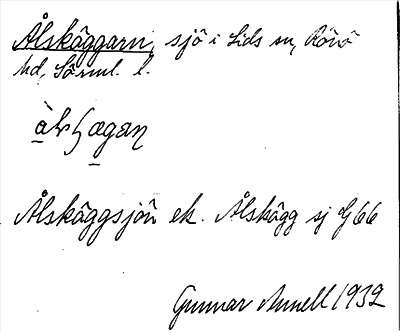 Ålskäggarn, sjö i Lids sn, Rönö
hd, Sörml. l.
Ålskäggsjön ek. Ålskägg sj G66
Gunnar Annell 1932